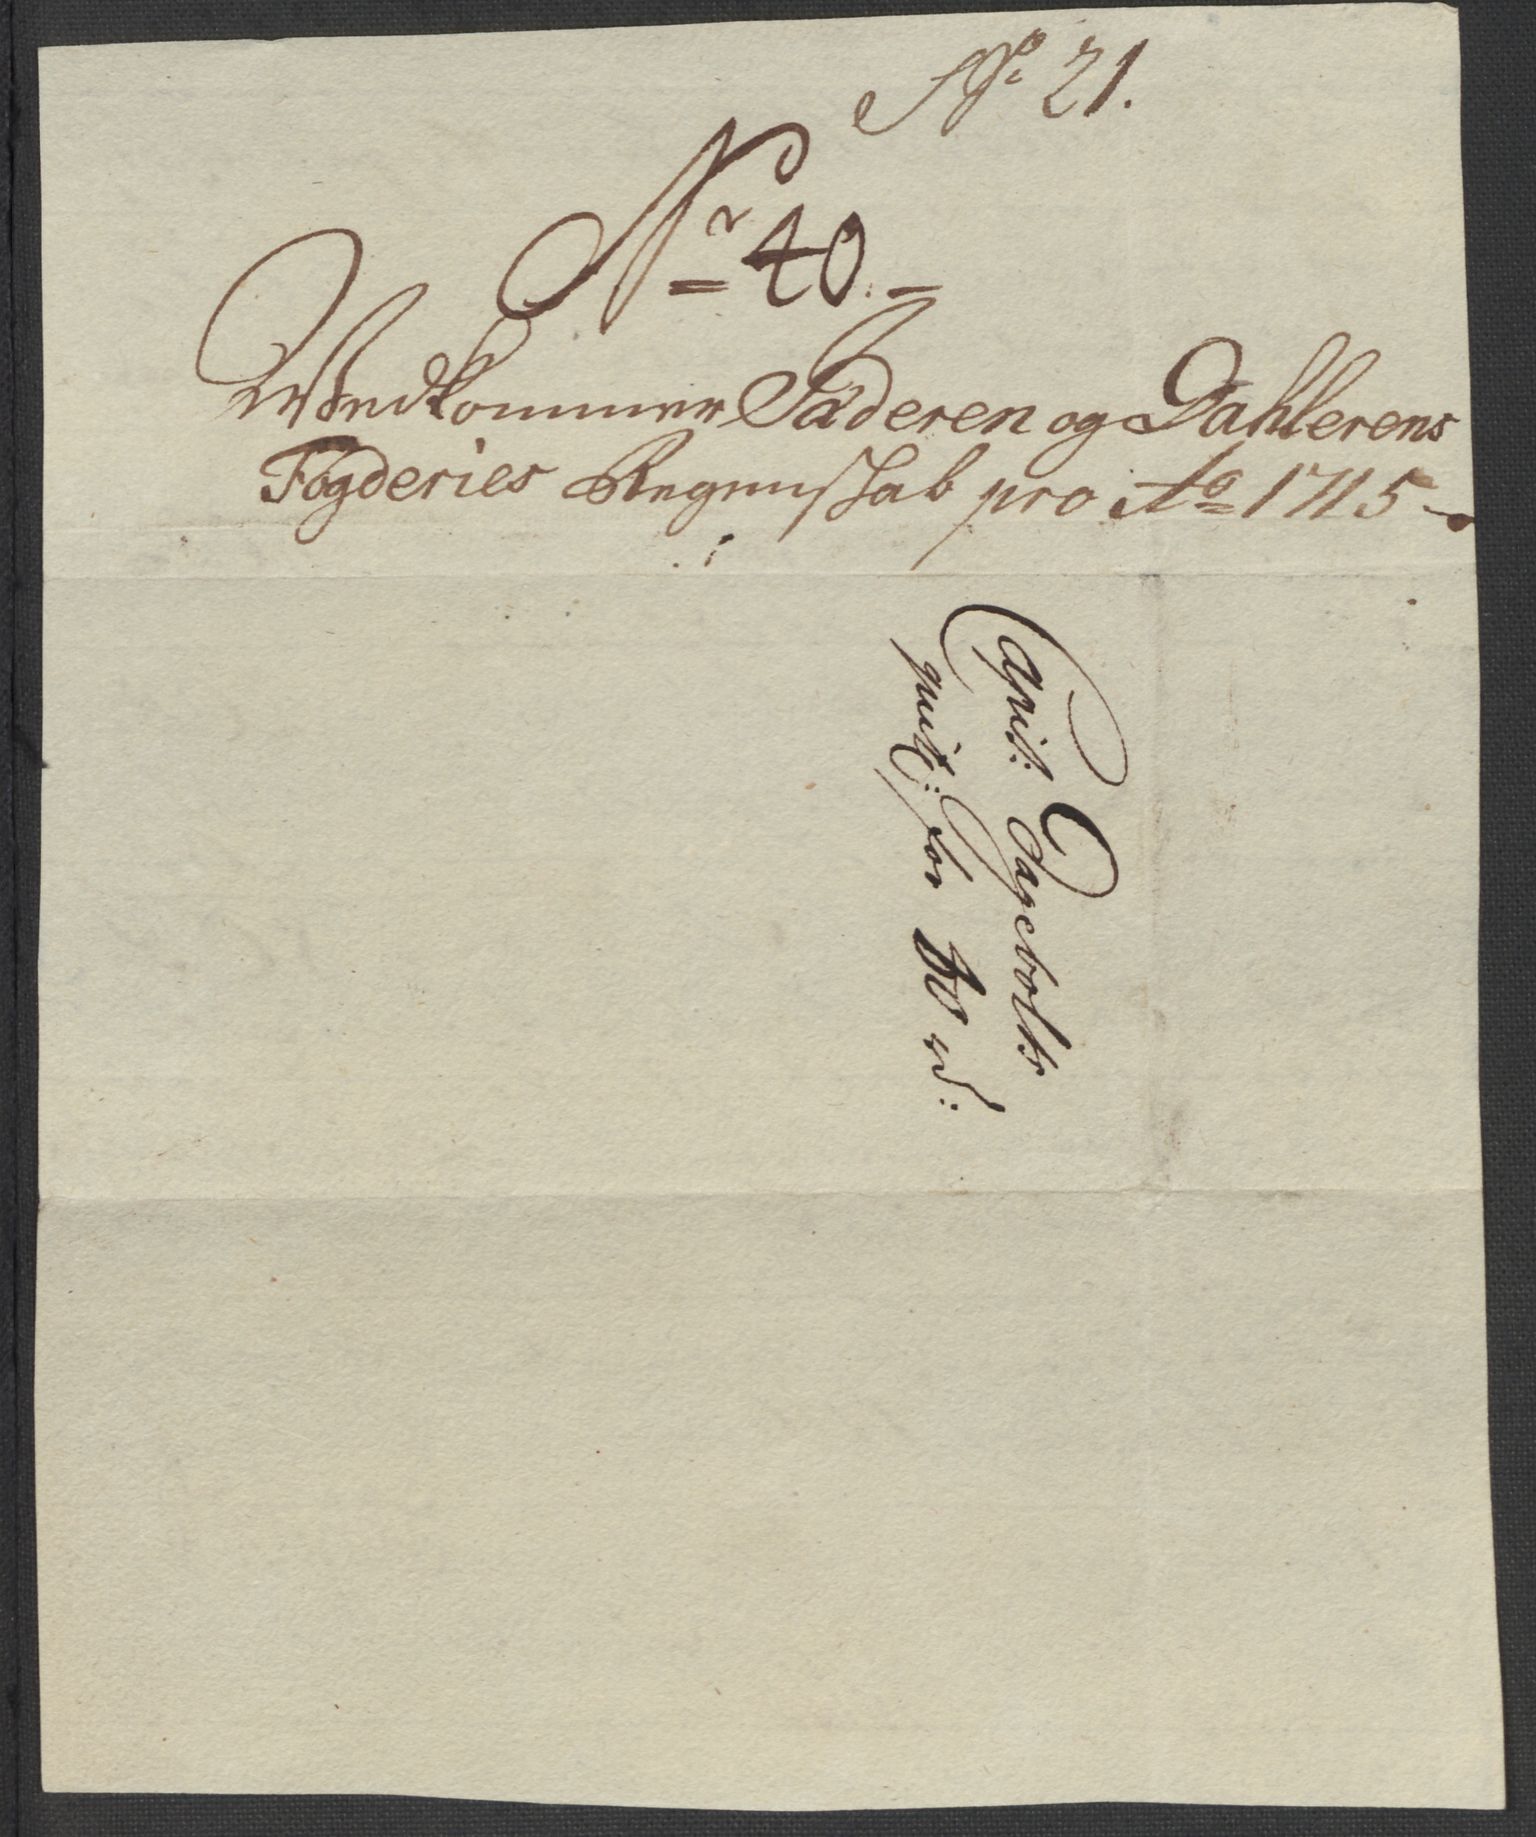 No 21.
Nr 40.
Vedkommer Jæderen og Dahlerens
Fogderies Regenskab pro Ao 1715
Capit: Dagebolts
quit: for 10